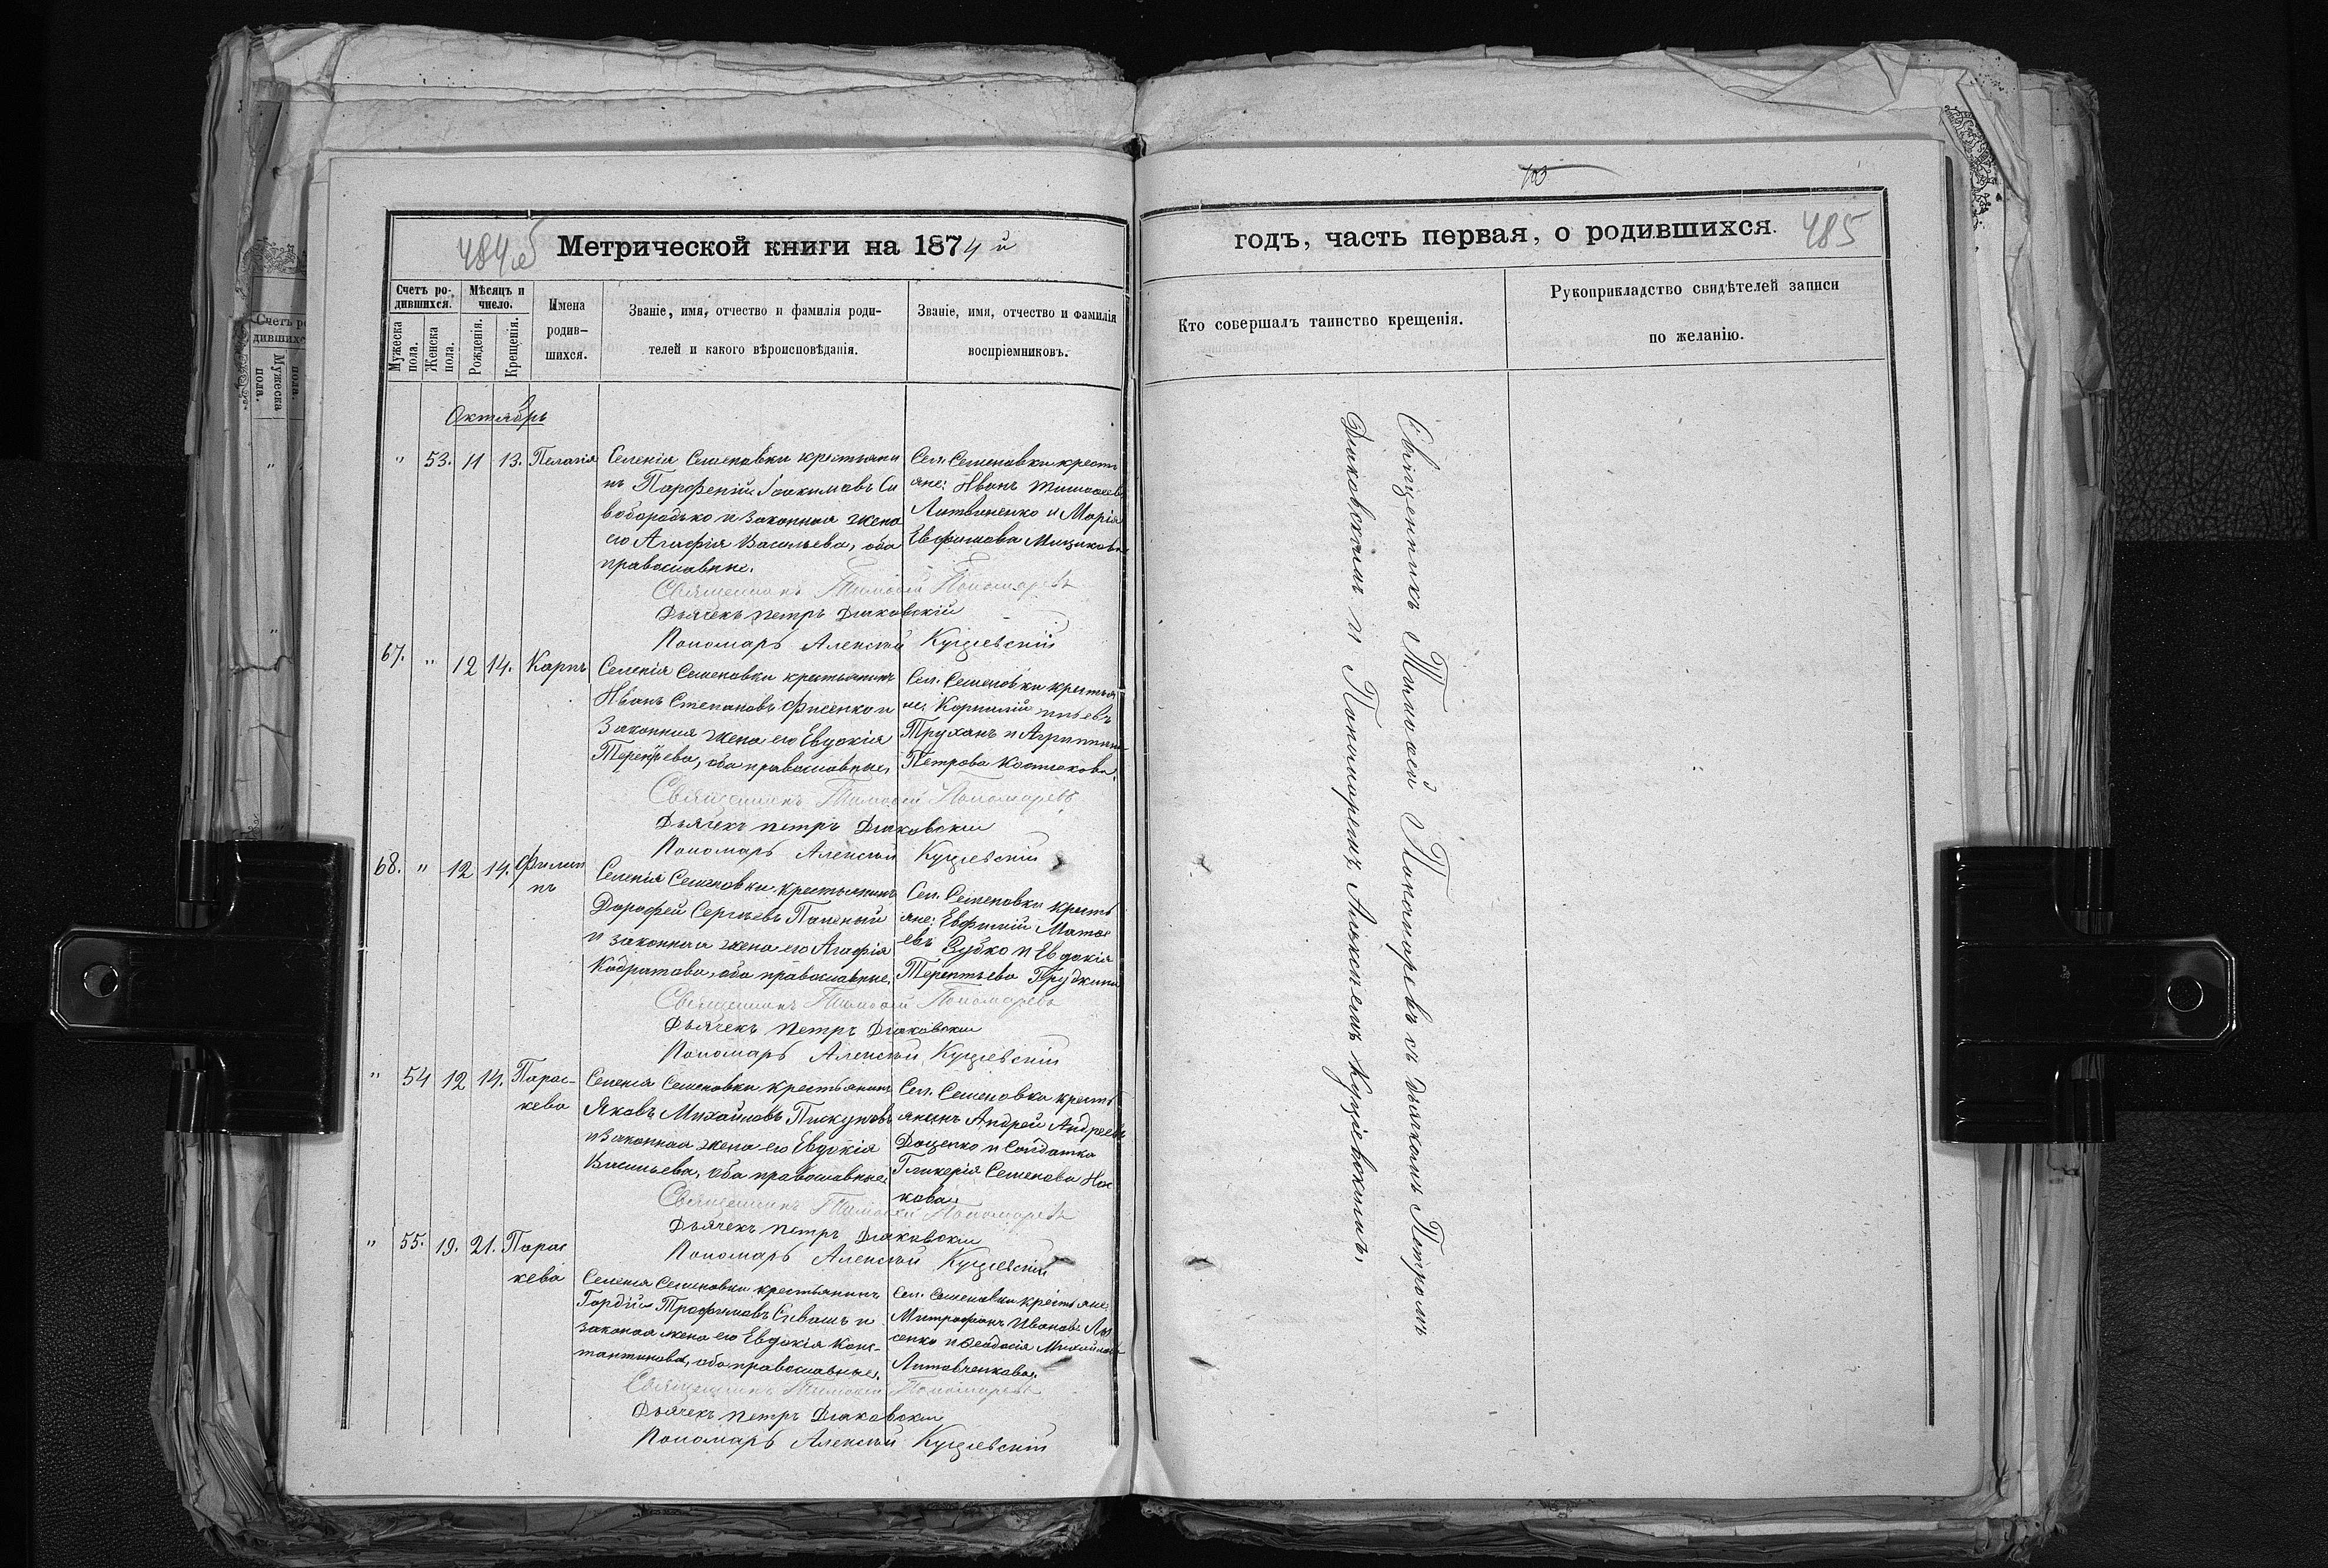 484 об
Метрической книги на 1874 й
Счетъ ро-
дившихся.
Мѣсяцъ и
число.
Мужеска
пола.
Женска
пола.
Рожденія.
Крещенія.
Имена
родив-
шихся.
Званіе, имя, отчество и фамилія роди-
телей и какого вѣроисповѣданія.
Званіе, имя, отчество и фамилія
воспріемниковъ.
Октябрь
" 53. 11 13. Пелагія
Селенія Семеновки крестьяни
нъ Парфеній Іоакимовъ Си
вобородько и законная жена
его Агафія Васильева, оба
православные.
Сел. Семеновки кресть
яне: Иванъ Тимофеевъ
Литвиненко и Марія
Евфимова
Священникъ Тимофей Пономаревъ
Дьячекъ Петръ Діаковскій
Пономарь Алексѣй Кущіевскій
67. " 12 14. Карпъ
Селенія Семеновки крестьянинъ
Иванъ Степановъ Фисенко и
законная жена его Евдокія
Терентьева, оба православные.
Сел. Семеновки крестья
не: Корнилій
Труханъ и Агриппина
Петрова Костюкова.
Священникъ Тимофей Пономаревъ
Дьячекъ Петръ Діаковскій
Пономарь Алексѣй Кущіевскій
68. " 12 14. Филип
пъ
Селенія Семеновки крестьянинъ
Дорофей Сергѣевъ
и законная жена его Агафія
Кодратова, оба православные.
Сел. Семеновки кресть
яне: Евфимій Матѳе
евъ Зубко и Евдокія
Терентьева
Священникъ Тимофей Пономаревъ
Дьячекъ Петръ Діаковскій
Пономарь Алексѣй Кущіевскій
" 54 12 14. Парас-
кева
Селенія Семеновки крестьянинъ
Яковъ Михайловъ Пискуновъ
и законная жена его Евдокія
Васильева, оба православные.
Сел. Семеновки кресть
янинъ Андрей Андреевъ
Доценко и солдатка
Гликерія Семенова Нос
кова.
Священникъ Тимофей Пономаревъ
Дьячекъ Петръ Діаковскій
Пономарь Алексѣй Кущіевскій
" 55. 19. 21. Парас
кева
Селенія Семеновки крестьянинъ
Гордій Трофимовъ Сивашъ и
законая жена его Евдокія Конс-
тантинова, оба православные.
Сел. Семеновки крестьяне:
Митрофанъ Ивановъ Лы
сенко и Феодосія Михайлова
Литовченкова.
Священникъ Тимофей Пономаревъ
Дьячекъ Петръ Діаковскій
Пономарь Алексѣй Кущіевскій
годъ, часть первая, о родившихся.
485
Кто совершалъ таинство крещенія.
Рукоприкладство свидѣтелей записи
по желанію.
Священникъ Тимофей Пономаревъ съ дьячкомъ Петромъ
Діаковскимъ и Пономаремъ Алексѣемъ Кущіевскимъ.